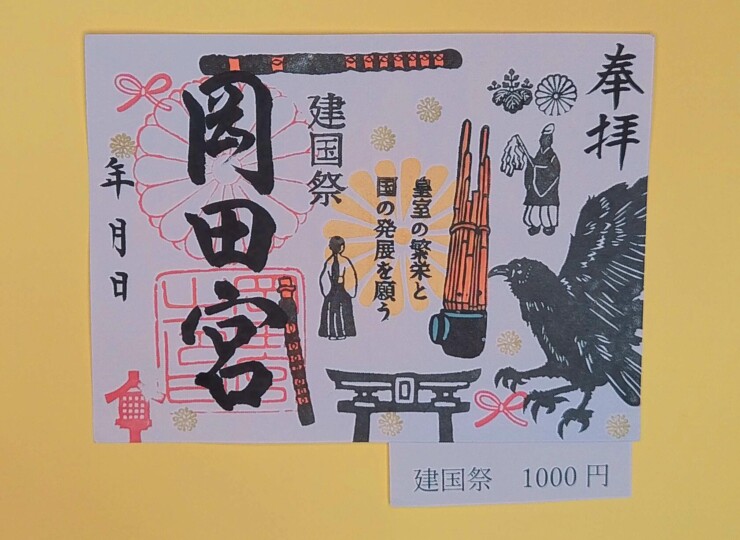 奉拝
皇室の繁栄と
国の発展を願う
建国祭
岡田宮
年 月 日
建国祭 1000円